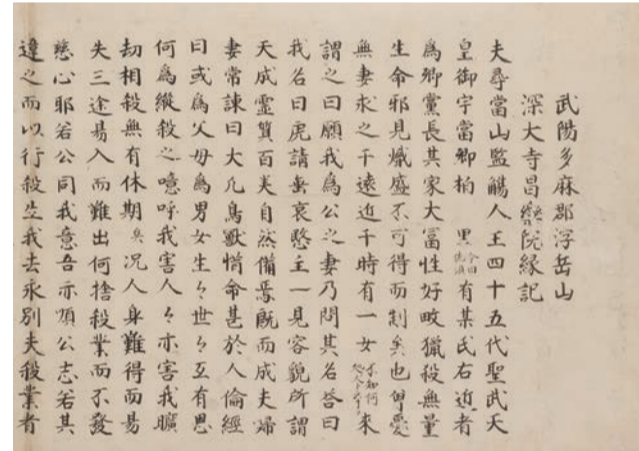 武陽多麻郡浮岳山
深大寺昌樂院縁記
夫尋當山監觴人王四十五代聖武天
皇御宇當郷柏 里今曰佐須有某氏右近者
為郷黨長其家大冨性好畋獵殺無量
生命邪見熾盛不可得而制矣也甞憂
無妻求之于遠近于時有一女不知何處人下文ナリ来
謂之曰願我為公之妻乃問其名荅曰
我名曰虎請垂哀愍主一見容貌所謂
天成霊質百美自然備焉既而成夫婦
妻常諫曰大凡鳥獸惜命甚於人倫經
曰或為父母為男女生々世々互有恩
何為縱殺之噫呼我害人々亦害我曠
劫相殺無有休期矣况人身難得而易
失三途易入而難出何捨殺業而不發
慈心耶若公同我意吾亦順公志若其
違之而以行殺生我去永別夫殺業者